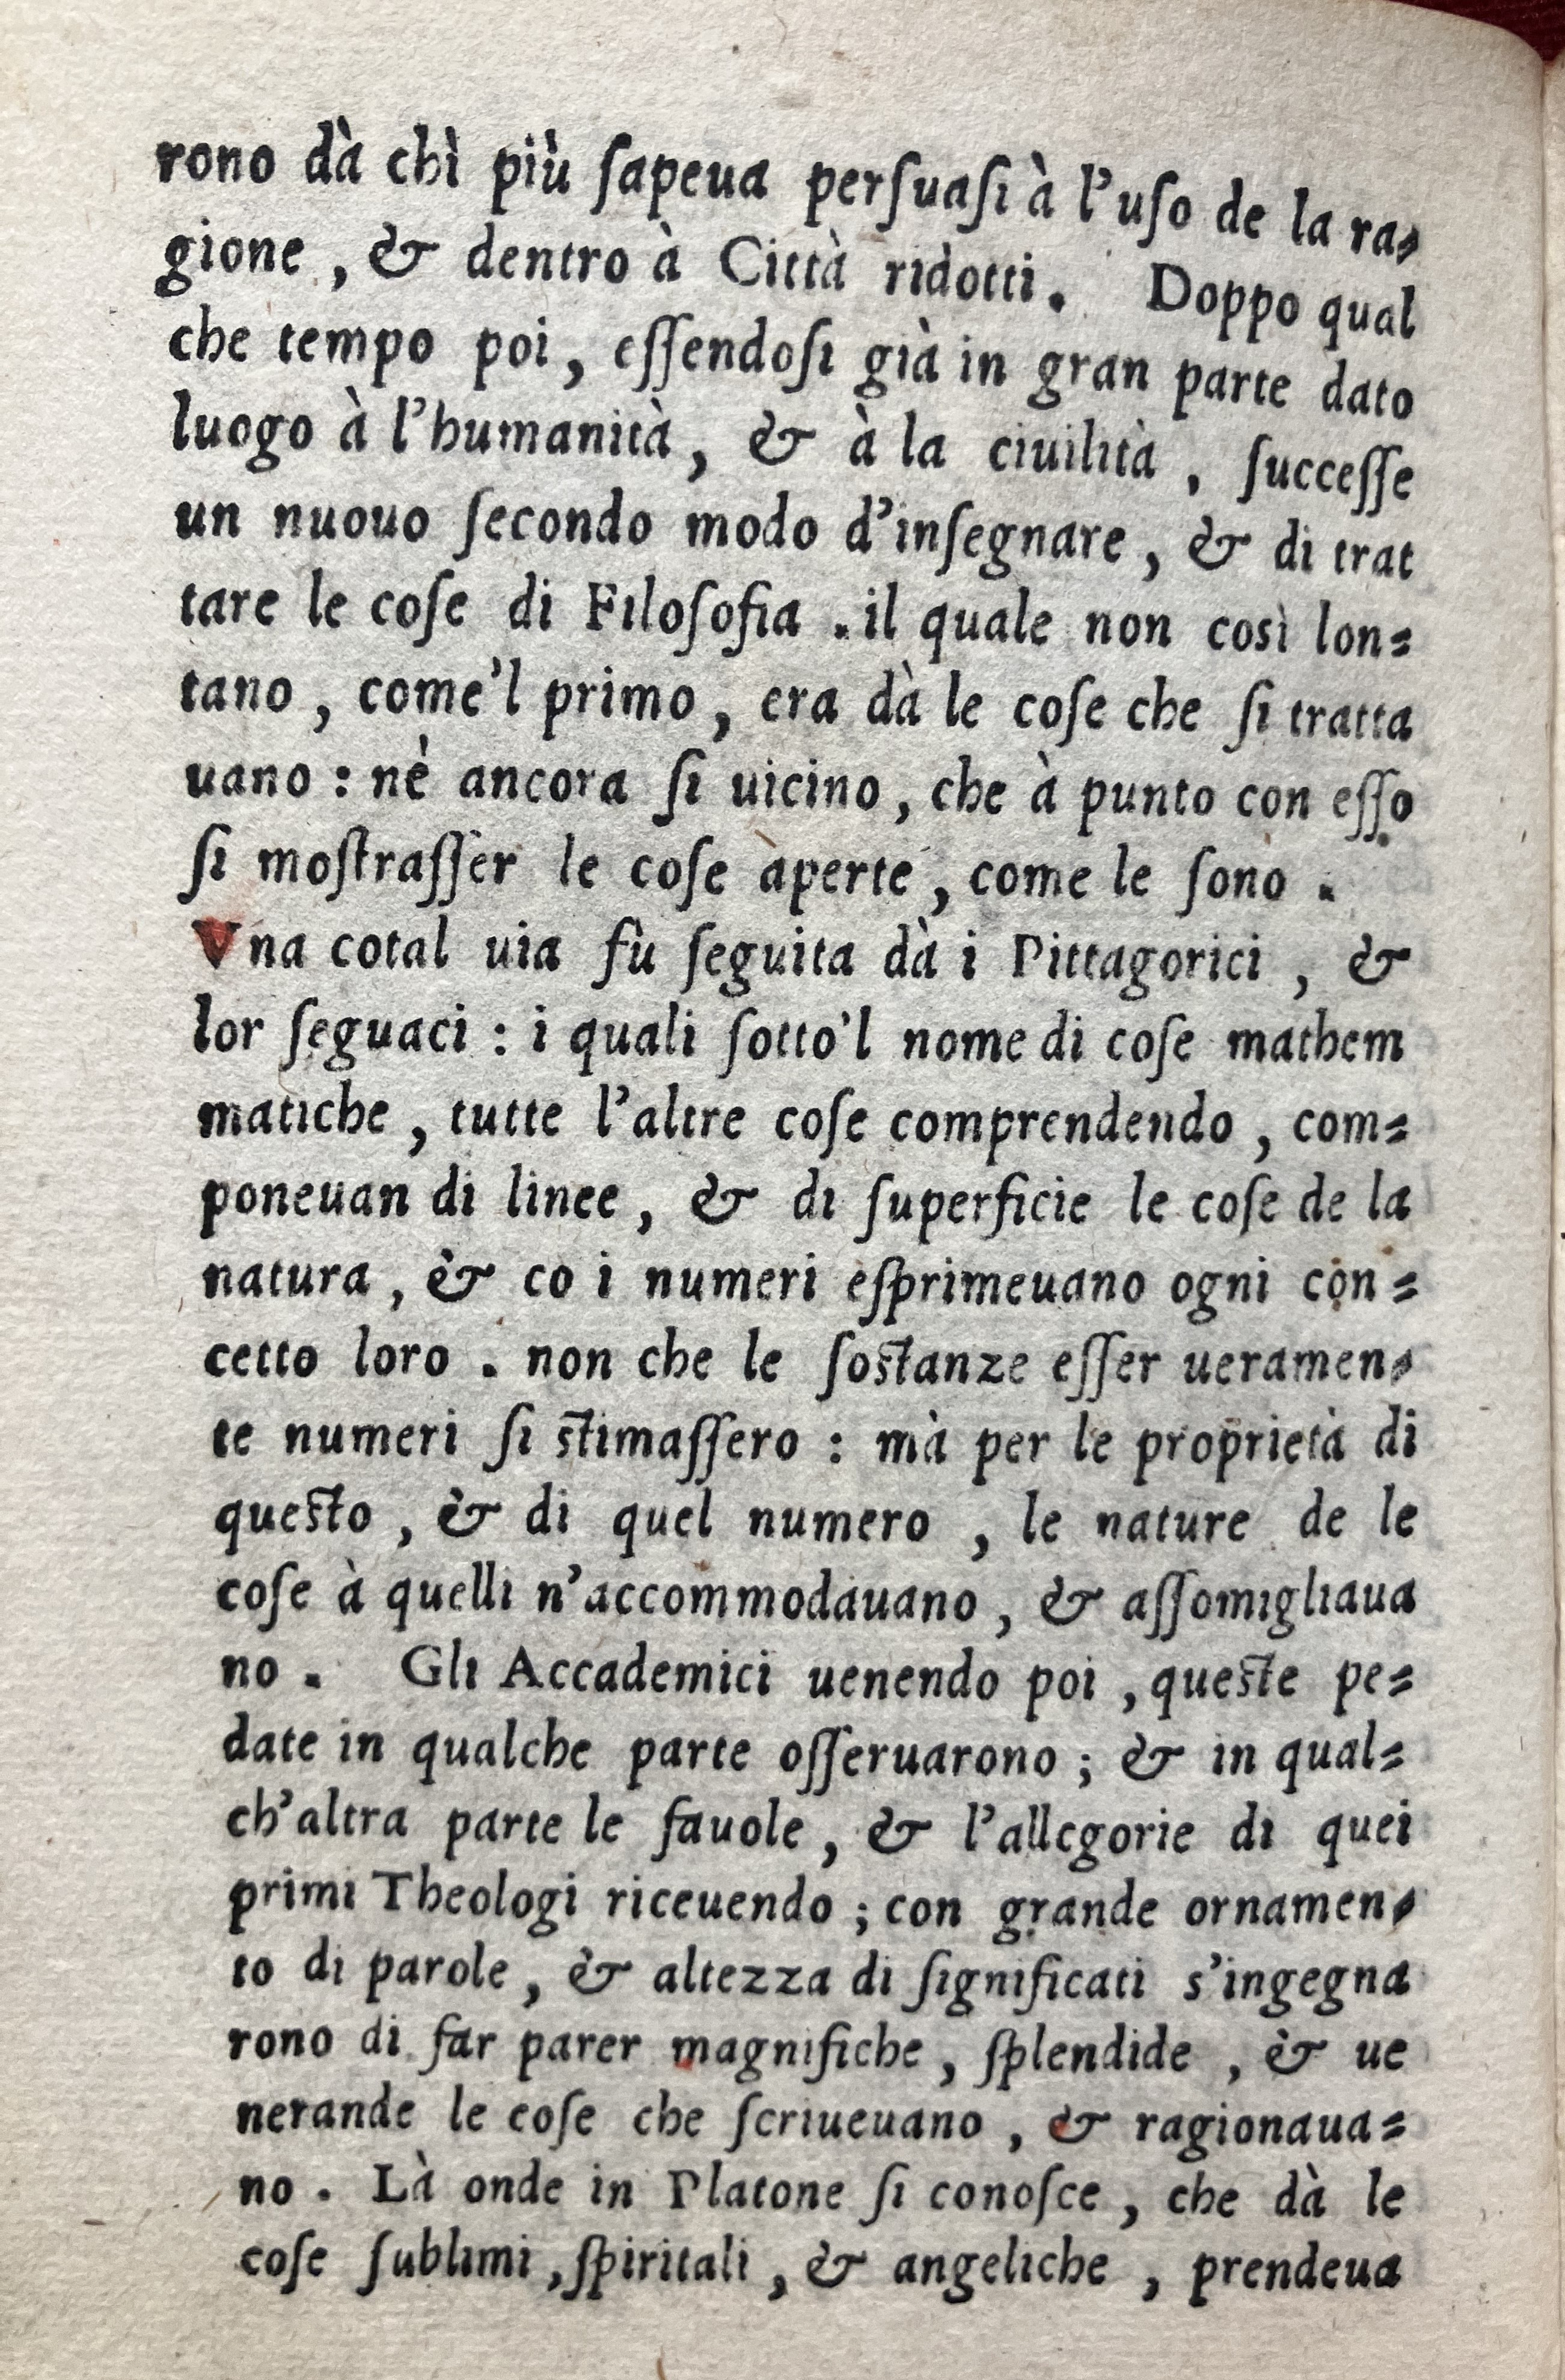 rono dà chì più ſapeua perſuaſi à l'uſo de la ra⸗
gione , & dentro à Città ridotti . Doppo qual
che tempo poi , eſſendoſi già in gran parte dato
luogo à l'humanità , & à la ciuilità , ſucceſſe
un nuouo ſecondo modo d'inſegnare , & di trat
tare le coſe di Filoſofia . il quale non così lon⸗
tano , come'l primo , era dà le coſe che ſi tratta
uano : nè ancora ſi uicino , che à punto con eſſo
ſi moſtraſſer le coſe aperte , come le ſono .
Vna cotal uia fù ſeguita dà i Pittagorici , &
lor ſeguaci : i quali ſotto'l nome di coſe mathem
matiche , tutte l'altre coſe comprendendo , com⸗
poneuan di linee , & di ſuperficie le coſe de la
natura , & co i numeri eſprimeuano ogni con⸗
cetto loro . non che le ſoſtanze eſſer ueramen⸗
te numeri ſi ſtimaſſero : mà per le proprietà di
queſto , & di quel numero , le nature de le
coſe à quelli n'accommodauano , & aſſomigliaua
no . Gli Accademici uenendo poi , queſte pe⸗
date in qualche parte oſſeruarono ; & in qual⸗
ch'altra parte le fauole , & l'allegorie di quei
primi Theologi riceuendo ; con grande ornamen⸗
to di parole , & altezza di ſignificati s'ingegna
rono di far parer magnifiche , ſplendide , & ue
nerande le coſe che ſcriueuano , & ragionaua⸗
no . Là onde in Platone ſi conoſce , che dà le
coſe ſublimi , ſpiritali , & angeliche , prendeua